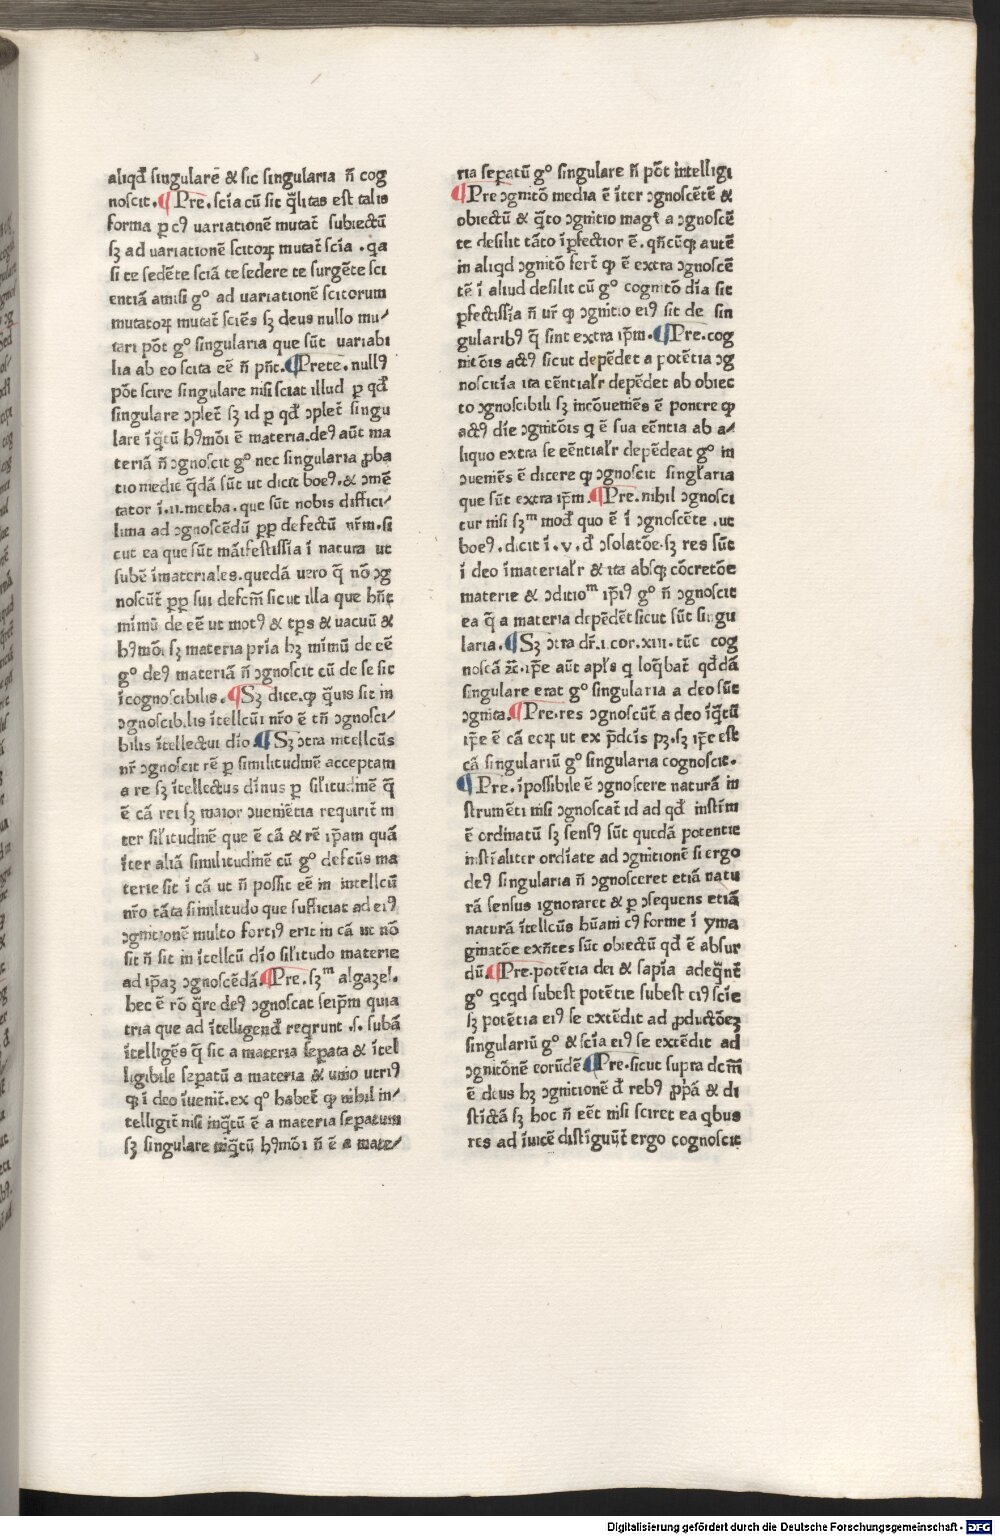 aliqđ singularē & sic singularia n̄ cog
noscit. ¶ Pre. scīa cū sit q̄litas est talis
forma p cꝰ uariationē mutat̄ subiectū
sꝫ ad uariationē scitoꝝ mutat̄ scīa . qa
si te sedēte sciā te sedere te surgēte sci
entiā amisi gͦ ad uariationē scitorum
mutatoꝝ mutat̄ sciēs sꝫ deus nullo mu⸗
tari pōt gͦ singularia que sūt uariabi
lia ab eo scita eē n̄ pn̄t. ¶ Prete. nullꝰ
pōt scire singulare nisi sciat illud ꝑ qđ
singulare ↄplet̄ sꝫ id ꝑ qđ ↄplet̄ singu
lare īq̄tū hꝰmōi ē materia. deꝰ aūt ma
teriā n̄ ↄgnoscit gͦ nec singularia ꝓba
tio medie q̄dā sūt ut dicit boeꝰ. & ↄmē
tator ī .ii. metha. que sūt nobis diffici⸗
lima ad ↄgnoscēdū ꝓp defectū nr̄m. si
cut ea que sūt māifestissīa ī natura ut
subē īmateriales. quedā uero q̄ nō ↄg
noscūt̄ ꝓp sui defcm̄ sicut illa que hn̄t
mīmū de eē ut motꝰ & tp̄s & uacuū &
hꝰmōi sꝫ materia prīa hꝫ mīmū de eē
gͦ deꝰ materiā n̄ ↄgnoscit cū de se sit
īcognoscibilis. ¶ Sꝫ dice. ꝙ q̄uis sit in
ↄgnoscibilis ītellcūi nr̄o ē tn̄ ↄgnosci⸗
bilis ītellectui dīo ¶ Sꝫ ↄtra intellcūs
nr̄ ↄgnoscit rē ꝑ similitudinē acceptam
a re sꝫ ītellectus dīnus ꝑ sil̄itudinē q̄
ē cā rei sꝫ maior ↄueniētia requirit̄ in
ter sil̄itudinē que ē cā & rē ip̄am quā
īter aliā similitudinē cū gͦ defcūs ma
terie sit ī cā ut n̄ possit eē in intellcū
nr̄o tāta similitudo que sufficiat ad eiꝰ
ↄgnitionē multo fortiꝰ erit in cā ut nō
sit n̄ sit in ītellcū dīo sil̄itudo materie
ad ip̄aꝫ ↄgnoscēdā. ¶ Pre. sꝫᵐ algazel.
hec ē rō q̄re deꝰ ↄgnoscat seip̄m quia
tria que ad ītelligenđ reqrunt .s. subā
ītelligēs q̄ sic a materia sepata & ītel
ligibile sepatū a materia & unio utriꝰ
ꝙ ī deo īuenit̄. ex qͦ habet̄ ꝙ nihil in⸗
telligit̄ nisi inq̄tū ē a materia sepatum
sꝫ singulare inq̄tū hꝰmōi n̄ ē a mate⸗
ria sepatū gͦ singulare n̄ pōt intelligi
¶ Pre ↄgnitō media ē īter ↄgnoscētē &
obiectū & q̄to ↄgnitio magꝭ a ↄgnoscē
te desilit tāto īpfectior ē. qn̄cūqꝫ autē
in aliqđ ↄgnitō fert̄ ꝙ ē extra ↄgnoscē
tē ī aliud desilit cū gͦ cognitō dīa sit
pfectissīa n̄ ur̄ ꝙ ↄgnitio eiꝰ sit de sin
gularibꝰ q̄ sint extra ip̄m. ¶ Pre. cog
nitōis actꝰ sicut depēdet a potētia ↄg
noscitīa ita eēntial̄r depēdet ab obiec
to ↄgnoscibili sꝫ incōueniēs ē ponere ꝙ
actꝰ dīe ↄgnitōis q ē sua eēntia ab a⸗
liquo extra se eēntial̄r depēdeat gͦ in
ↄueniēs ē dicere ꝙ ↄgnoscit singl̄aria
que sūt extra ip̄m. ¶ Pre. nihil ↄgnosci
tur nisi sꝫᵐ modū quo ē ī ↄgnoscēte . ut
boeꝰ. dicit ī .v. đ ↄsolatōe. sꝫ res sūt
ī deo īmaterial̄r & ita absqꝫ cōcretōe
materie & ↄditioᵐ ip̄iꝰ gͦ n̄ ↄgnoscit
ea q̄ a materia depēdēt sicut sūt singu
laria. ¶ Sꝫ ↄtra dr̄.i. cor. xiii. tūc cog
noscā ⁊c̄. ip̄e aūt apl̄s q loq̄bat̄ qđdā
singulare erat gͦ singularia a deo sūt
ↄgnita. ¶ Pre. res ↄgnoscūt̄ a deo īq̄tū
ip̄e ē cā eaꝝ ut ex p̄dcīs pꝫ. sꝫ ip̄e est
cā singulariū gͦ singularia cognoscit.
¶ Pre. īpossibile ē ↄgnoscere naturā in
strumēti nisi ↄgnoscat̄ id ad qđ instīm
ē ordinatū sꝫ sensꝰ sūt quedā potentie
instr̄aliter ordīate ad ↄgnitionē si ergo
deꝰ singularia n̄ ↄgnosceret etiā natu
rā sensus ignoraret & ꝑ ↄsequens etiā
naturā ītellcūs hūani cꝰ forme ī yma
ginatōe exn̄tes sūt obiectū qđ ē absur
dū. ¶ Pre. potētia dei & sapīa adeq̄nt̄
gͦ qcqđ subest potētie subest eiꝰ scīe
sꝫ potētia eiꝰ se extēdit ad ꝓductōeꝫ
singulariū gͦ & scīa eiꝰ se extēdit ad
ↄgnitōnē eorūdē ¶ Pre. sicut supra dcm̄
ē deus hꝫ ↄgnitionē đ rebꝰ ꝓp̄ā & di
stīctā sꝫ hoc n̄ eēt nisi sciret ea qbus
res ad īuicē distīguūt̄ ergo cognoscit
Digitalisierung gefördert durch die Deutsche Forschungsgemeinschaft - DFG